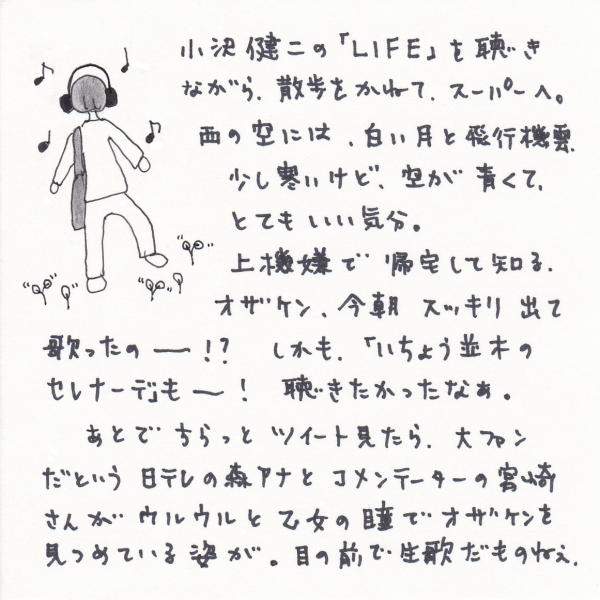 小沢健二の「LIFE」を聴き
ながら、散歩をかねて、スーパーへ。
西の空には、白い月と飛行機雲。
少し寒いけど、空が青くて、
とてもいい気分。
上機嫌で帰宅して知る、
オザケン、今朝スッキリ出て
歌ったのー!? しかも、「いちょう並木の
セレナーデ」もー! 聴きたかったなぁ。
あとでちらっとツイート見たら、大ファン
だという日テレの森アナとコメンテーターの宮崎
さんがウルウルと乙女の瞳でオザケンを
見つめている姿が。目の前で生歌だものねぇ。